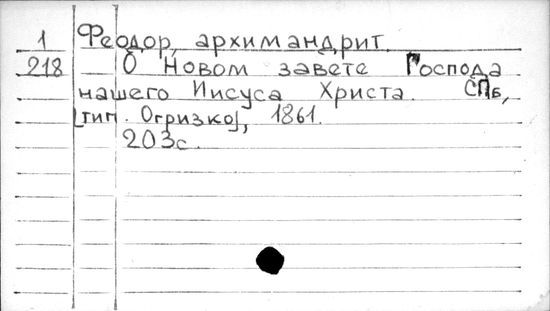 1 Феодор, архимандрит
218 О Новом завете Господа
нашего Иисуса Христа. СПб,
[тип. Огризко], 1861.
203с.